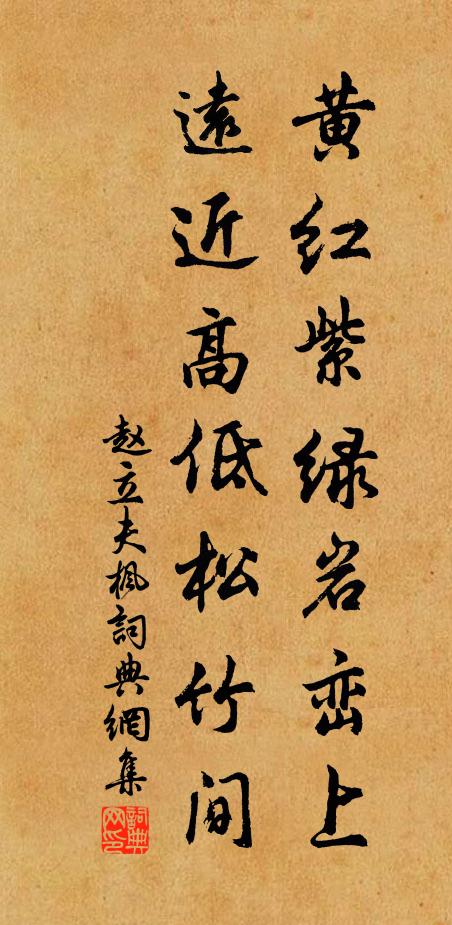 黄红紫绿岩峦上
遠近高低松竹间
赵立夫枫詞典網集
詞典网印